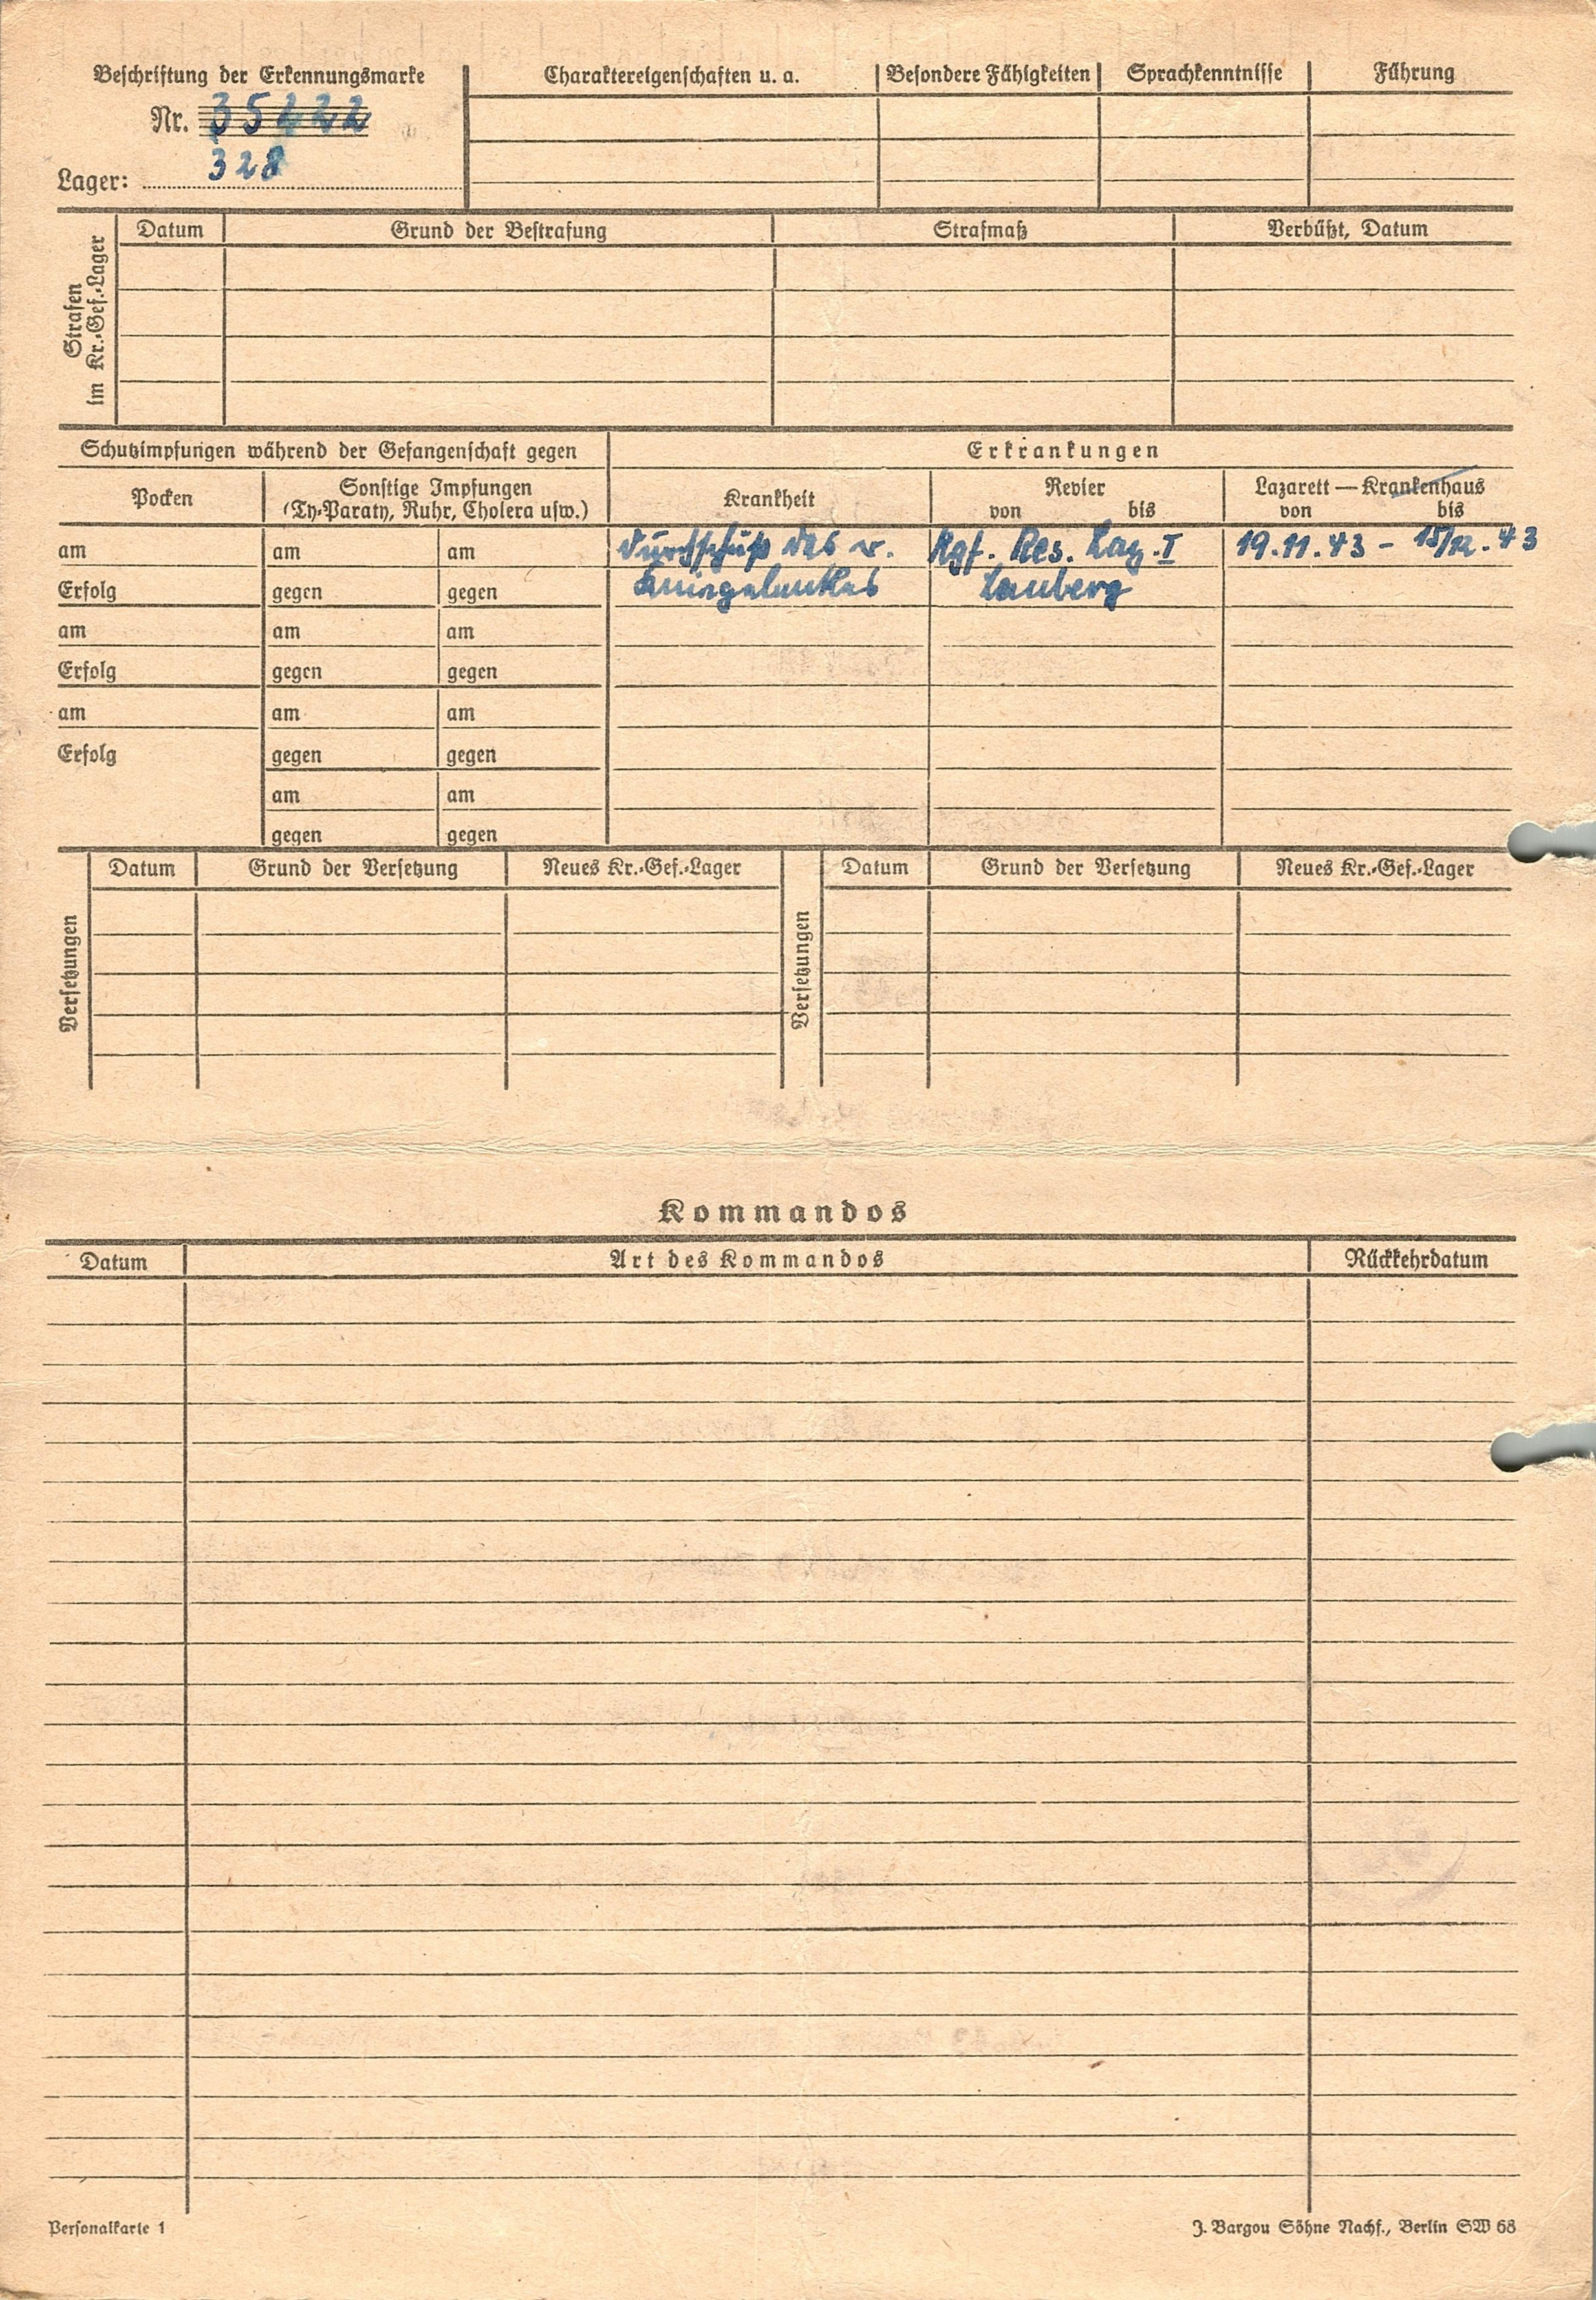 Beschriftung der Erkennungsmarke
Nr. 35222
Lager: 328
Charaktereigenschaften u. a. Besondere Fähigkeiten Sprachkenntnisse Führung
Strafen
im Kr.-Gef.-Lager
Datum Grund der Bestrafung Strafmaß Verbüßt, Datum
Schutzimpfungen während der Gefangenschaft gegen
Erkrankungen
Pocken
Sonstige Impfungen
(Ty-Paraty, Ruhr, Cholera usw.)
Krankheit
Revier
von bis
Lazarett — Krankenhaus
von bis
am am am Durchschuß des r. Kgf. Res. Laz. I 19.11.43 - 15/12.43
Erfolg gegen gegen Kniegelenkes
am am am
Erfolg gegen gegen
am am am
Erfolg gegen gegen
am am
gegen gegen
Versetzungen
Datum Grund der Versetzung Neues Kr.-Gef.-Lager
Versetzungen
Datum Grund der Versetzung Neues Kr.-Gef.-Lager
Kommandos
Datum Art des Kommandos Rückkehrdatum
Personalkarte 1
J. Bargou Söhne Nachf., Berlin SW 68